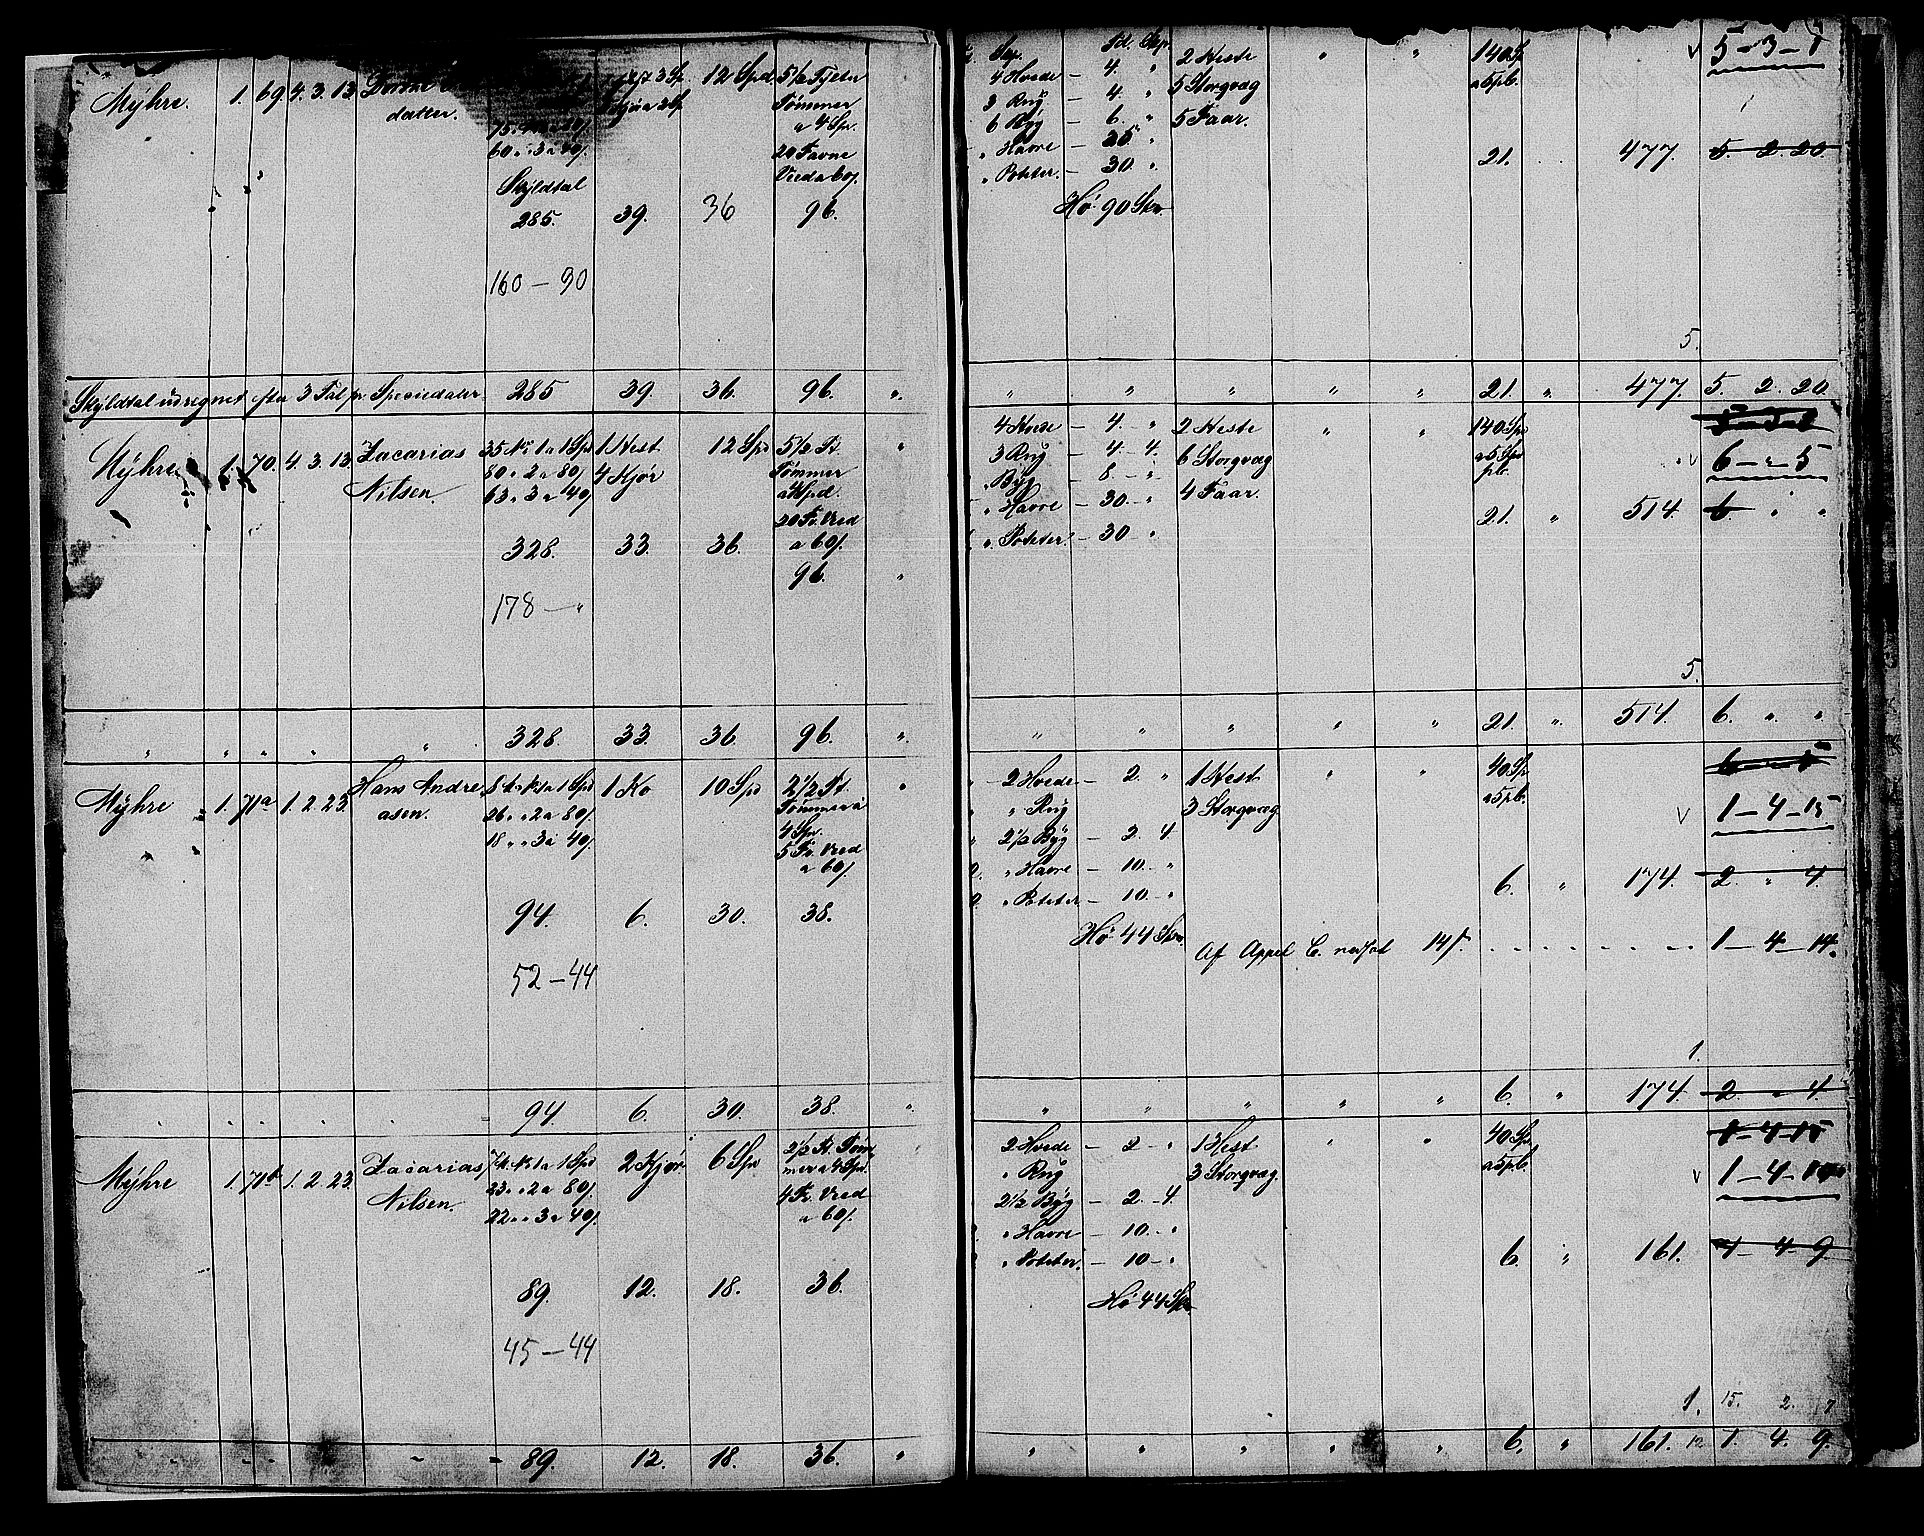 Mÿhre. 1. 69. 4. 3. 13. Dorthe
datter.
75.
60 " " 3 a 40/.
Skÿldtal
285. 39. 36 96.
160 — 90
12 Spd. 5 1/2 Tÿlvter
Tømmer
a 4 Spd.
20 Favne
Ved a 60/.
Skÿldtal udregnet efter 3 Tal pr. Speciedaler 285 39. 36. 96. "
Mÿhre. 1. 70. 4. 3. 13. Zacarias
Nilsen
35 No 1 a 1 Spd
80 " 2 a 80/.
63 " 3 a 40/.
1 Hest
4 Kjør
12 Spd
5 1/2 Tt.
Tømmer
a 4 Spd.
20 Fv. Ved
a 60/.
328. 33. 36. 96. "
178 — "
" " " " " 328. 33. 36. 96. "
Mÿhre 1. 71a 1. 2. 23. Hans Andre
asen.
26 " " 2 a 80/.
18 " " 3 a 40/.
1 Ko
10 Spd
2 1/2 Tt.
Tømmer a
4 Spd.
5 Fv. Ved
a 60/.
94. 6. 30. 38.
52 — 44
94. 6. 30. 38. "
Mÿhre 1. 71b 1. 2. 23. Zacarias
Nilsen.
7 M. No 1 a 1 Spd
23 " " 2 a 80/.
22 " " 3 a 40/.
2 Kjør
6 Spd
2 1/2 Tt. Tøm
mer a 4 Spd.
4 Fv. Ved
a 60/.
89. 12. 18. 36.
45 — 44
89. 12. 18. 36. "
Td. Skp.
4 Hvede — 4. " 2 Heste " " 140 Sp
3 Rug — 4. " 5 Storqvæg a 5 pCt.
6 Bÿg — 6. " 5 Faar.
" Havre — 25. "
" Poteter. — 30. "
Hø 90 Skp.
5 — 3 — 1
21. 477. 5. 2. 20.
5.
" " " " " 21. " 477. 5. 2. 20.
4 Hvede — 4. — " 2 Heste " " 140 Spd
3 Rug — 4. — 4. 6 Storqvæg a 5 Spd
" Bÿg — 8. — " 4 Faar. pCt.
" Havre — 30. — "
" Poteter. — 30 — "
6 — " — 5
21. " 514. 6. " "
5.
" " " " " 21. " 514. 6. " "
2 Hvede — 2. " 1 Hest " " 40 Sp
" Rug 3 Storqvæg a 5 pCt.
2 1/2 Bÿg — 2. 4.
" Havre — 10. "
" Poteter — 10. "
Hø 44 Skp.
1 — 4 — 15
6. " 174. 2. " 4.
Af Appel C. nedsat 14/. 1 — 4 — 14.
1.
" " " " " 6. " 174. 2 " 4
2 Hvede — 2 — " 1 Hest " " 40 Sp.
" Rug 3 Storqvæg a 5 pCt.
2 1/2 Bÿg — 2. — 4.
" Havre — 10. — "
" Poteter. — 10 — "
Hø 44 Skp
1 — 4 — 15
6. " 161. 1 — 4 — 9.
1. 15. 2. 17
" " " " " 6. " 161. 12 1. 4. 9.